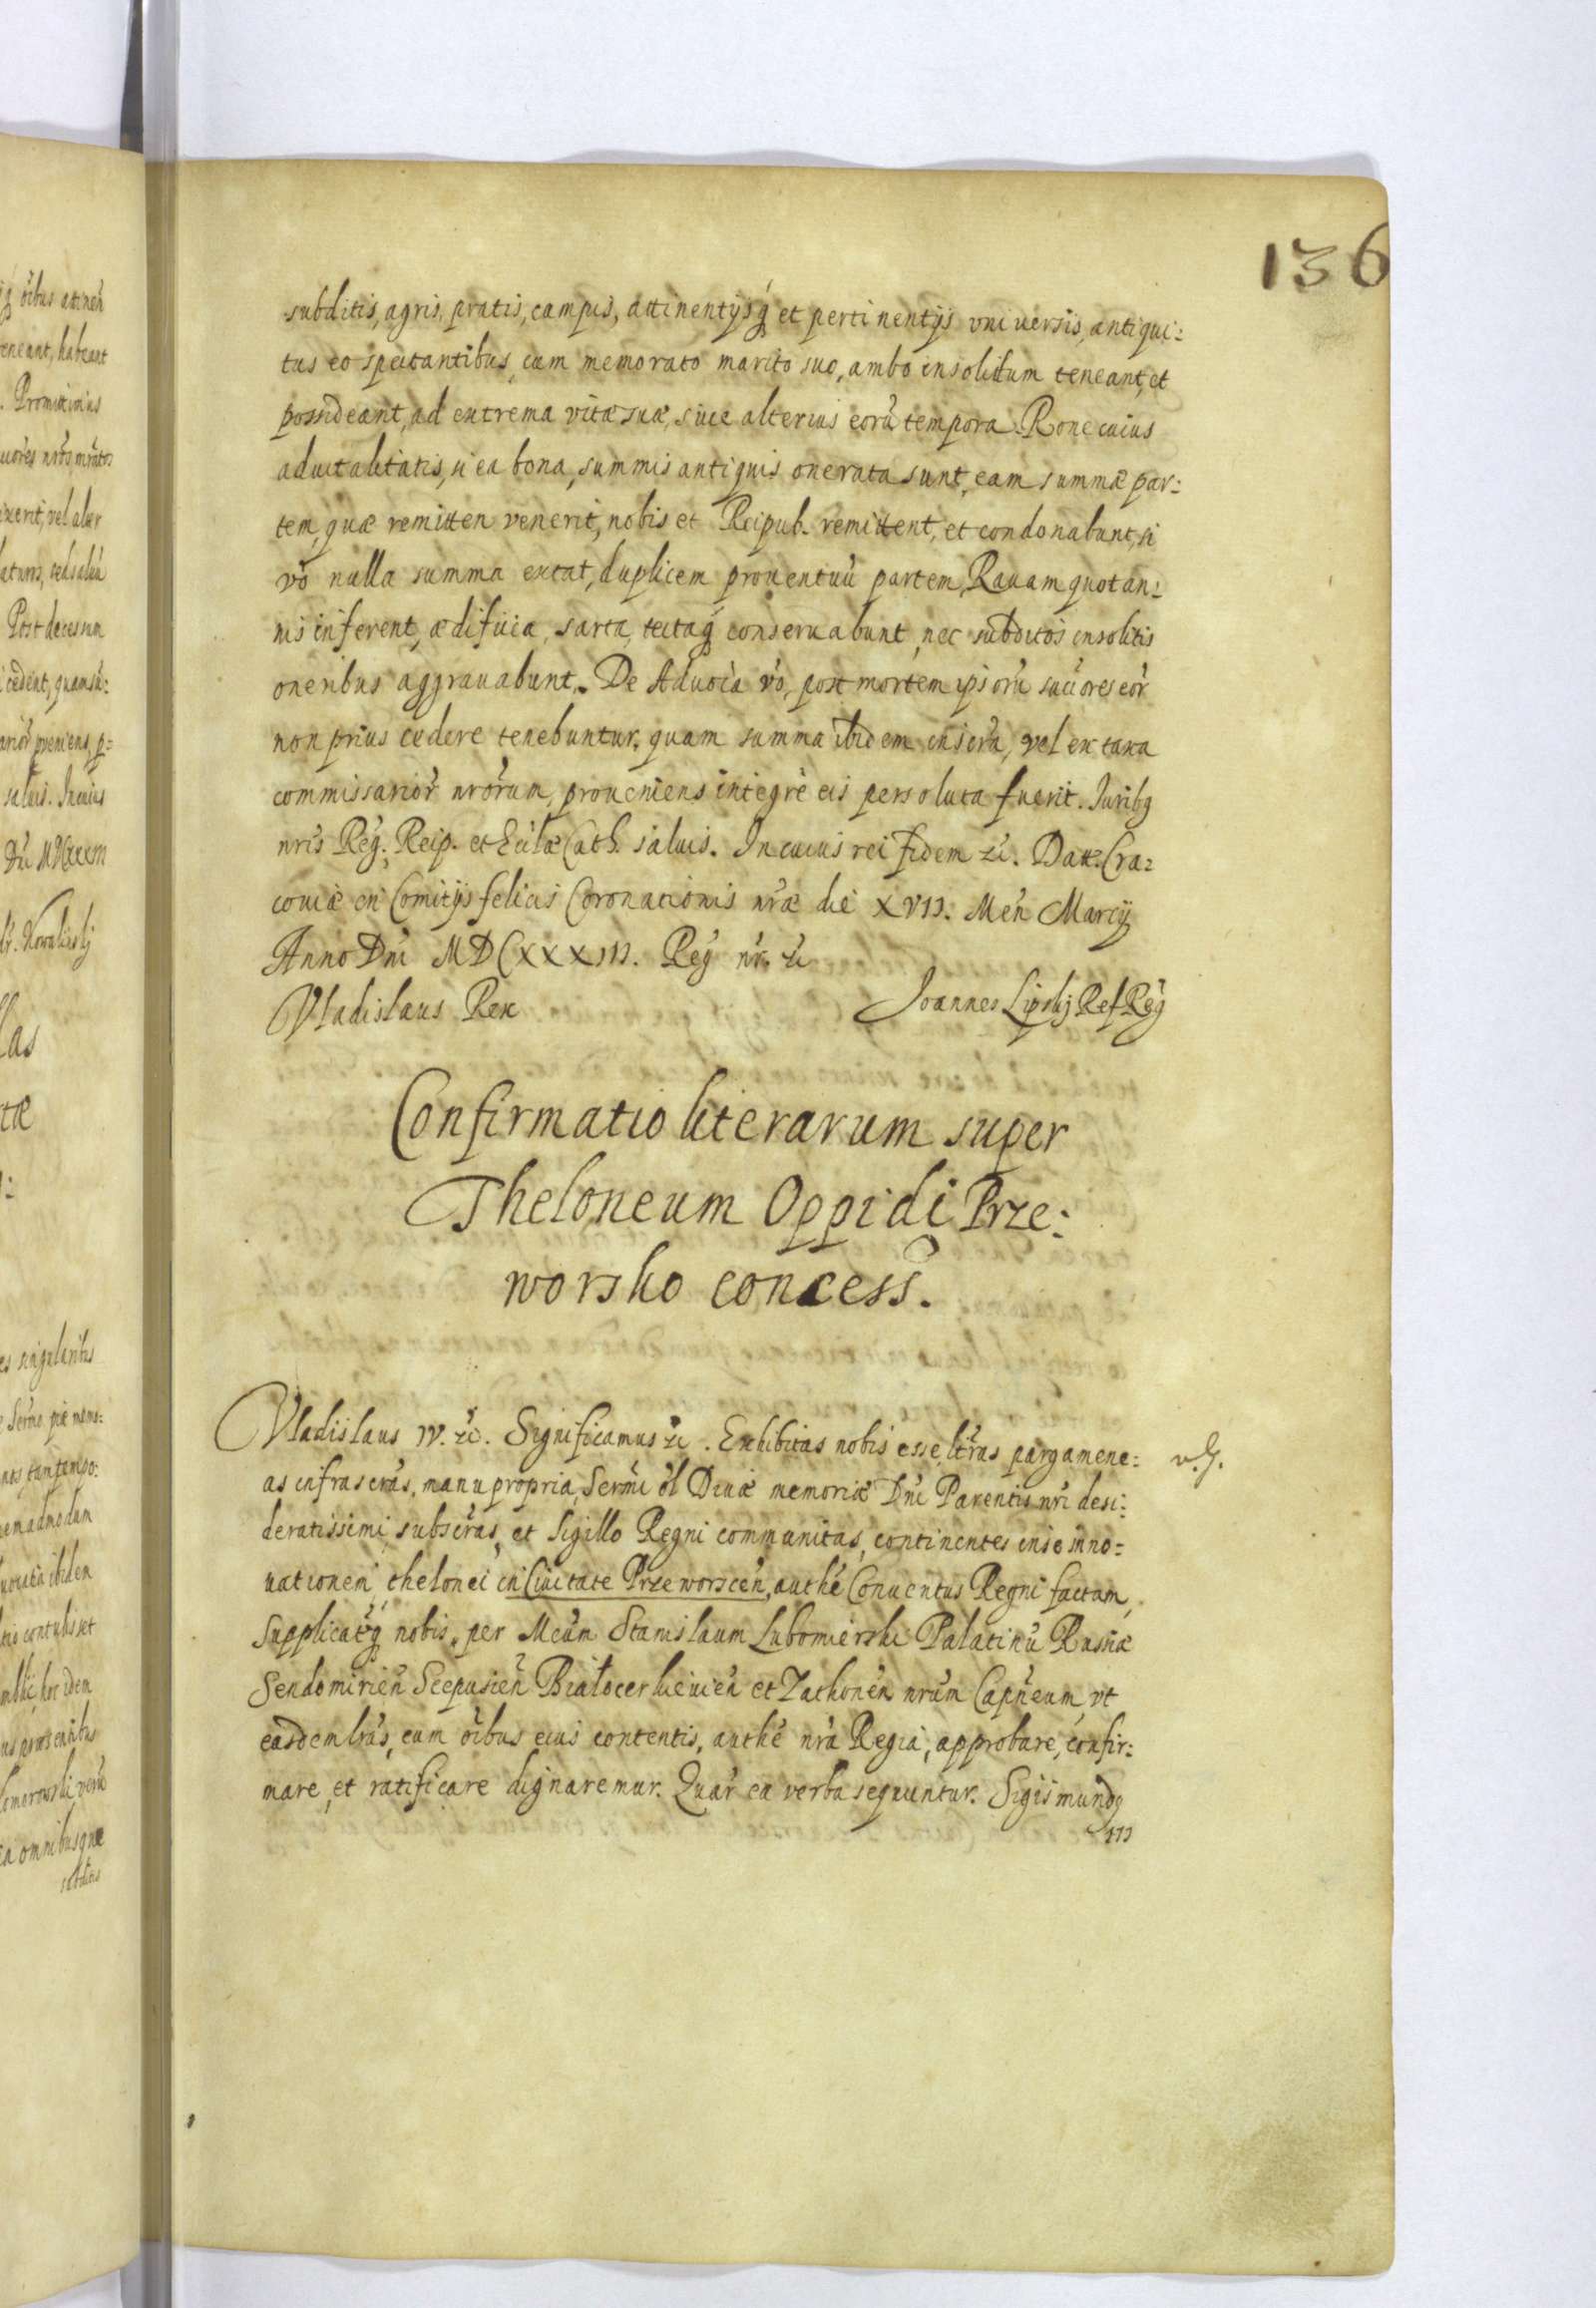 136
subditis, agris, pratis, campis, attinentijsq́ et pertinentijs vniuersis, antiqui:
tus eo spectantibus, cum memorato marito suo, ambo in solidum teneant, et
possideant, ad extrema vitæ suæ, siue alterius eorū tempora. Rone cuius
aduitalitatis, si ea bona, summis antiquis onerata sunt, eam summæ par:
tem, quæ remitten venerit, nobis et Reipub. remittent, et condonabunt, si
vo nulla summa extat, duplicem prouentuū partem, Rauam quotan:
nis inferent, ædificia, sarta, tectaq́ conseruabunt, nec subditos insolitis
oneribus aggrauabunt. De Aduocia vo, post mortem ipsorū succores eor
non prius cedere tenebuntur, quam summa ibidem inscra, vel ex taxa
commissarior nrorum, proueniens integre eis persoluta fuerit. Juribq
nris Reg. Reip. et Eclæ Cath. saluis. In cuius rei fidem zc. Datt. Cra:
couiæ in Comitijs felicis Coronationis nræ die XVII. Men Marcij
Anno Dni MDCXXXIII. Reg nr. zc
Vladislaus Rex Joannes Lipskj Ref Reg
Confirmatio literarum super
Theloneum Oppidi Prze:
worsko concess.
Vladislaus IV. zc. Significamus zc. Exhibitas nobis esse ltras pargamene:
as infrascras, manu propria, Sermi ol Diuæ memoriæ Dni Parentis nri desi:
deratissimi subscras, et Sigillo Regni communitas, continentes in se inno:
uationem thelonei in Ciuitate Przeworscen, authe Conuentus Regni factam,
Supplicatq́ nobis per Mcum Stanislaum Lubomierski Palatinū Russiæ
Sendomirien Scepusien Białocerkieuien et Zathonen nrum Capneum, vt
easdem lras, cum oibus eius contentis, authe nra Regia, approbare, confir:
mare, et ratificare dignaremur. Quar ea verba sequuntur. Sigismundq
III